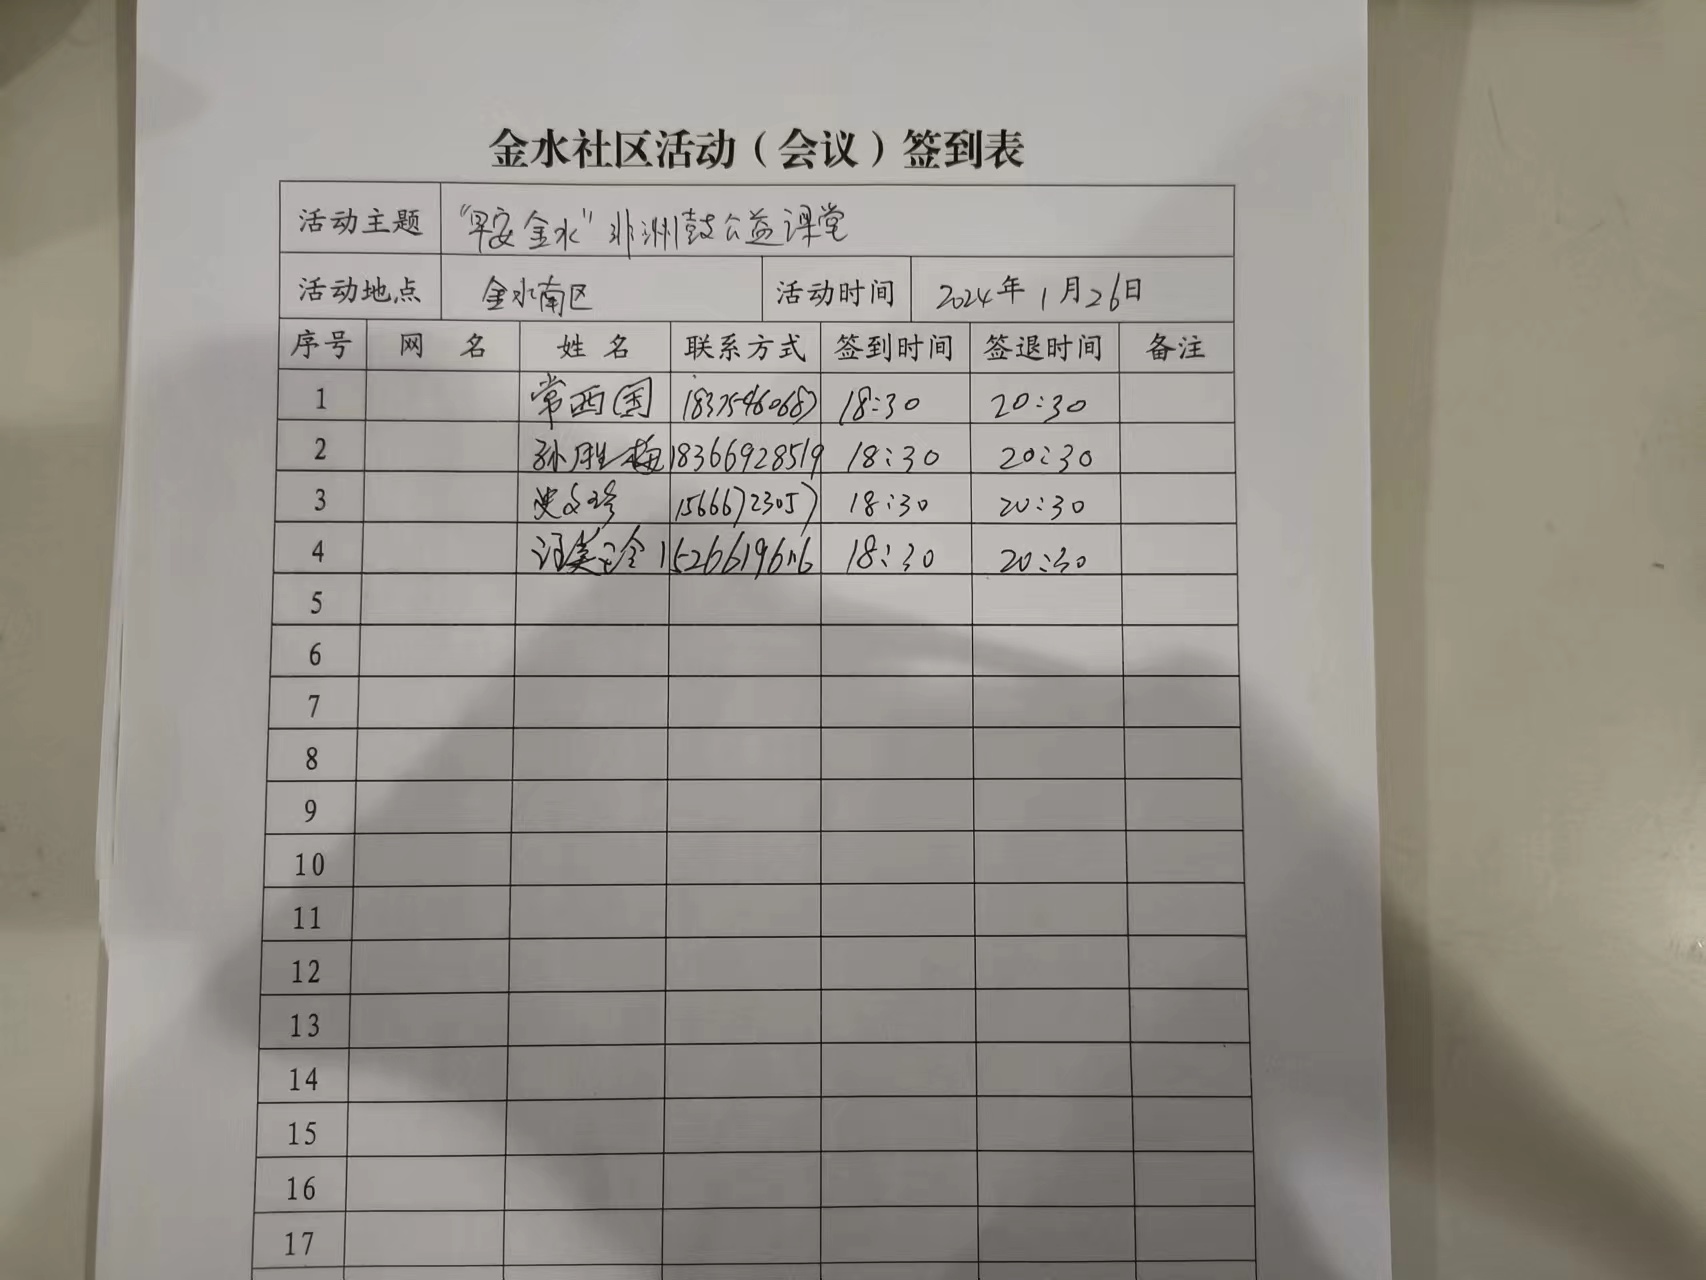 金水社区活动（会议）签到表
活动主题 “早安金水”非洲鼓公益课堂
活动地点 金水南区 活动时间 2024年1月26日
序号 网 名 姓 名 联系方式 签到时间 签退时间 备注
1 常西国 18375460687 18:30 20:30
2 孙胜梅 18366928519 18:30 20:30
3 史文珍 15666723057 18:30 20:30
4 18:30 20:30
5
6
7
8
9
10
11
12
13
14
15
16
17